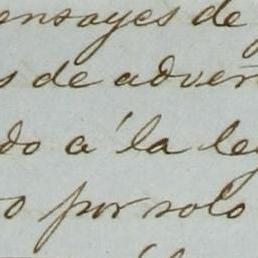 ensayes de
s de adver
do á la le
o por solo